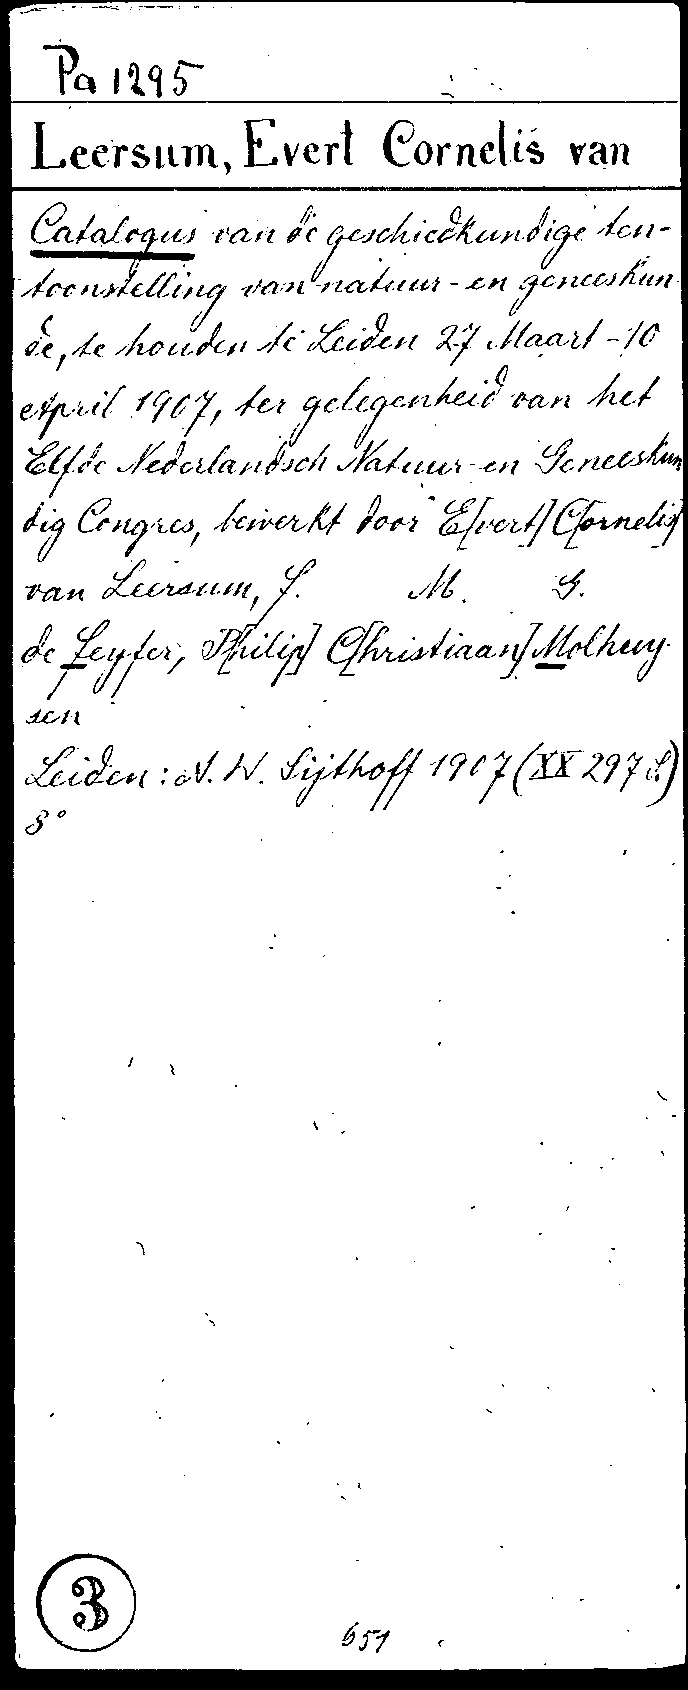 Pa 1295
Leersum, Evert Cornelis van
Catalogus van de geschiedkundige ten-
toonstelling van natuur- en geneeskun
de, te houden te Leiden 27 Maart - 10
April 1907, ter gelegenheid van het
Elfde Nederlandsch Natuur- en Geneeskun
dig Congres, bewerkt door E[vert] C[ornelis]
van Leersum, F. M. G.
de Feyfer, P[hilip] C[hristiaan] Molhuy-
sen
Leiden: A. W. Sijthoff 1907 (XX 297 S.)
8°
3
651